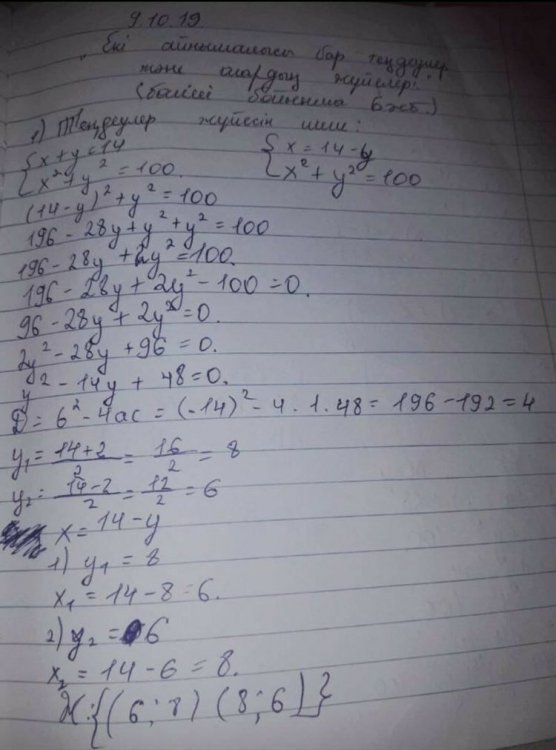 9.10.19
"Екі айнымалысы бар теңдеулер
және олардың жүйелері"
(бөлімі бойынша БЖБ)
1) Теңдеулер жүйесін шеш:
{x+y=14 {x=14-y
{x²+y²=100. {x²+y²=100
(14-y)²+y²=100
196-28y+y²+y²=100
196-28y+2y²=100.
196-28y+2y²-100=0.
96-28y+2y²=0.
2y²-28y+96=0.
y²-14y+48=0.
D=b²-4ac=(-14)²-4·1·48=196-192=4
y₁=14+2/2=16/2=8
y₂=14-2/2=12/2=6
x=14-y
1) y₁=8
x₁=14-8=6.
2) y₂=6
x₂=14-6=8.
Ж:{(6;8)(8;6)}